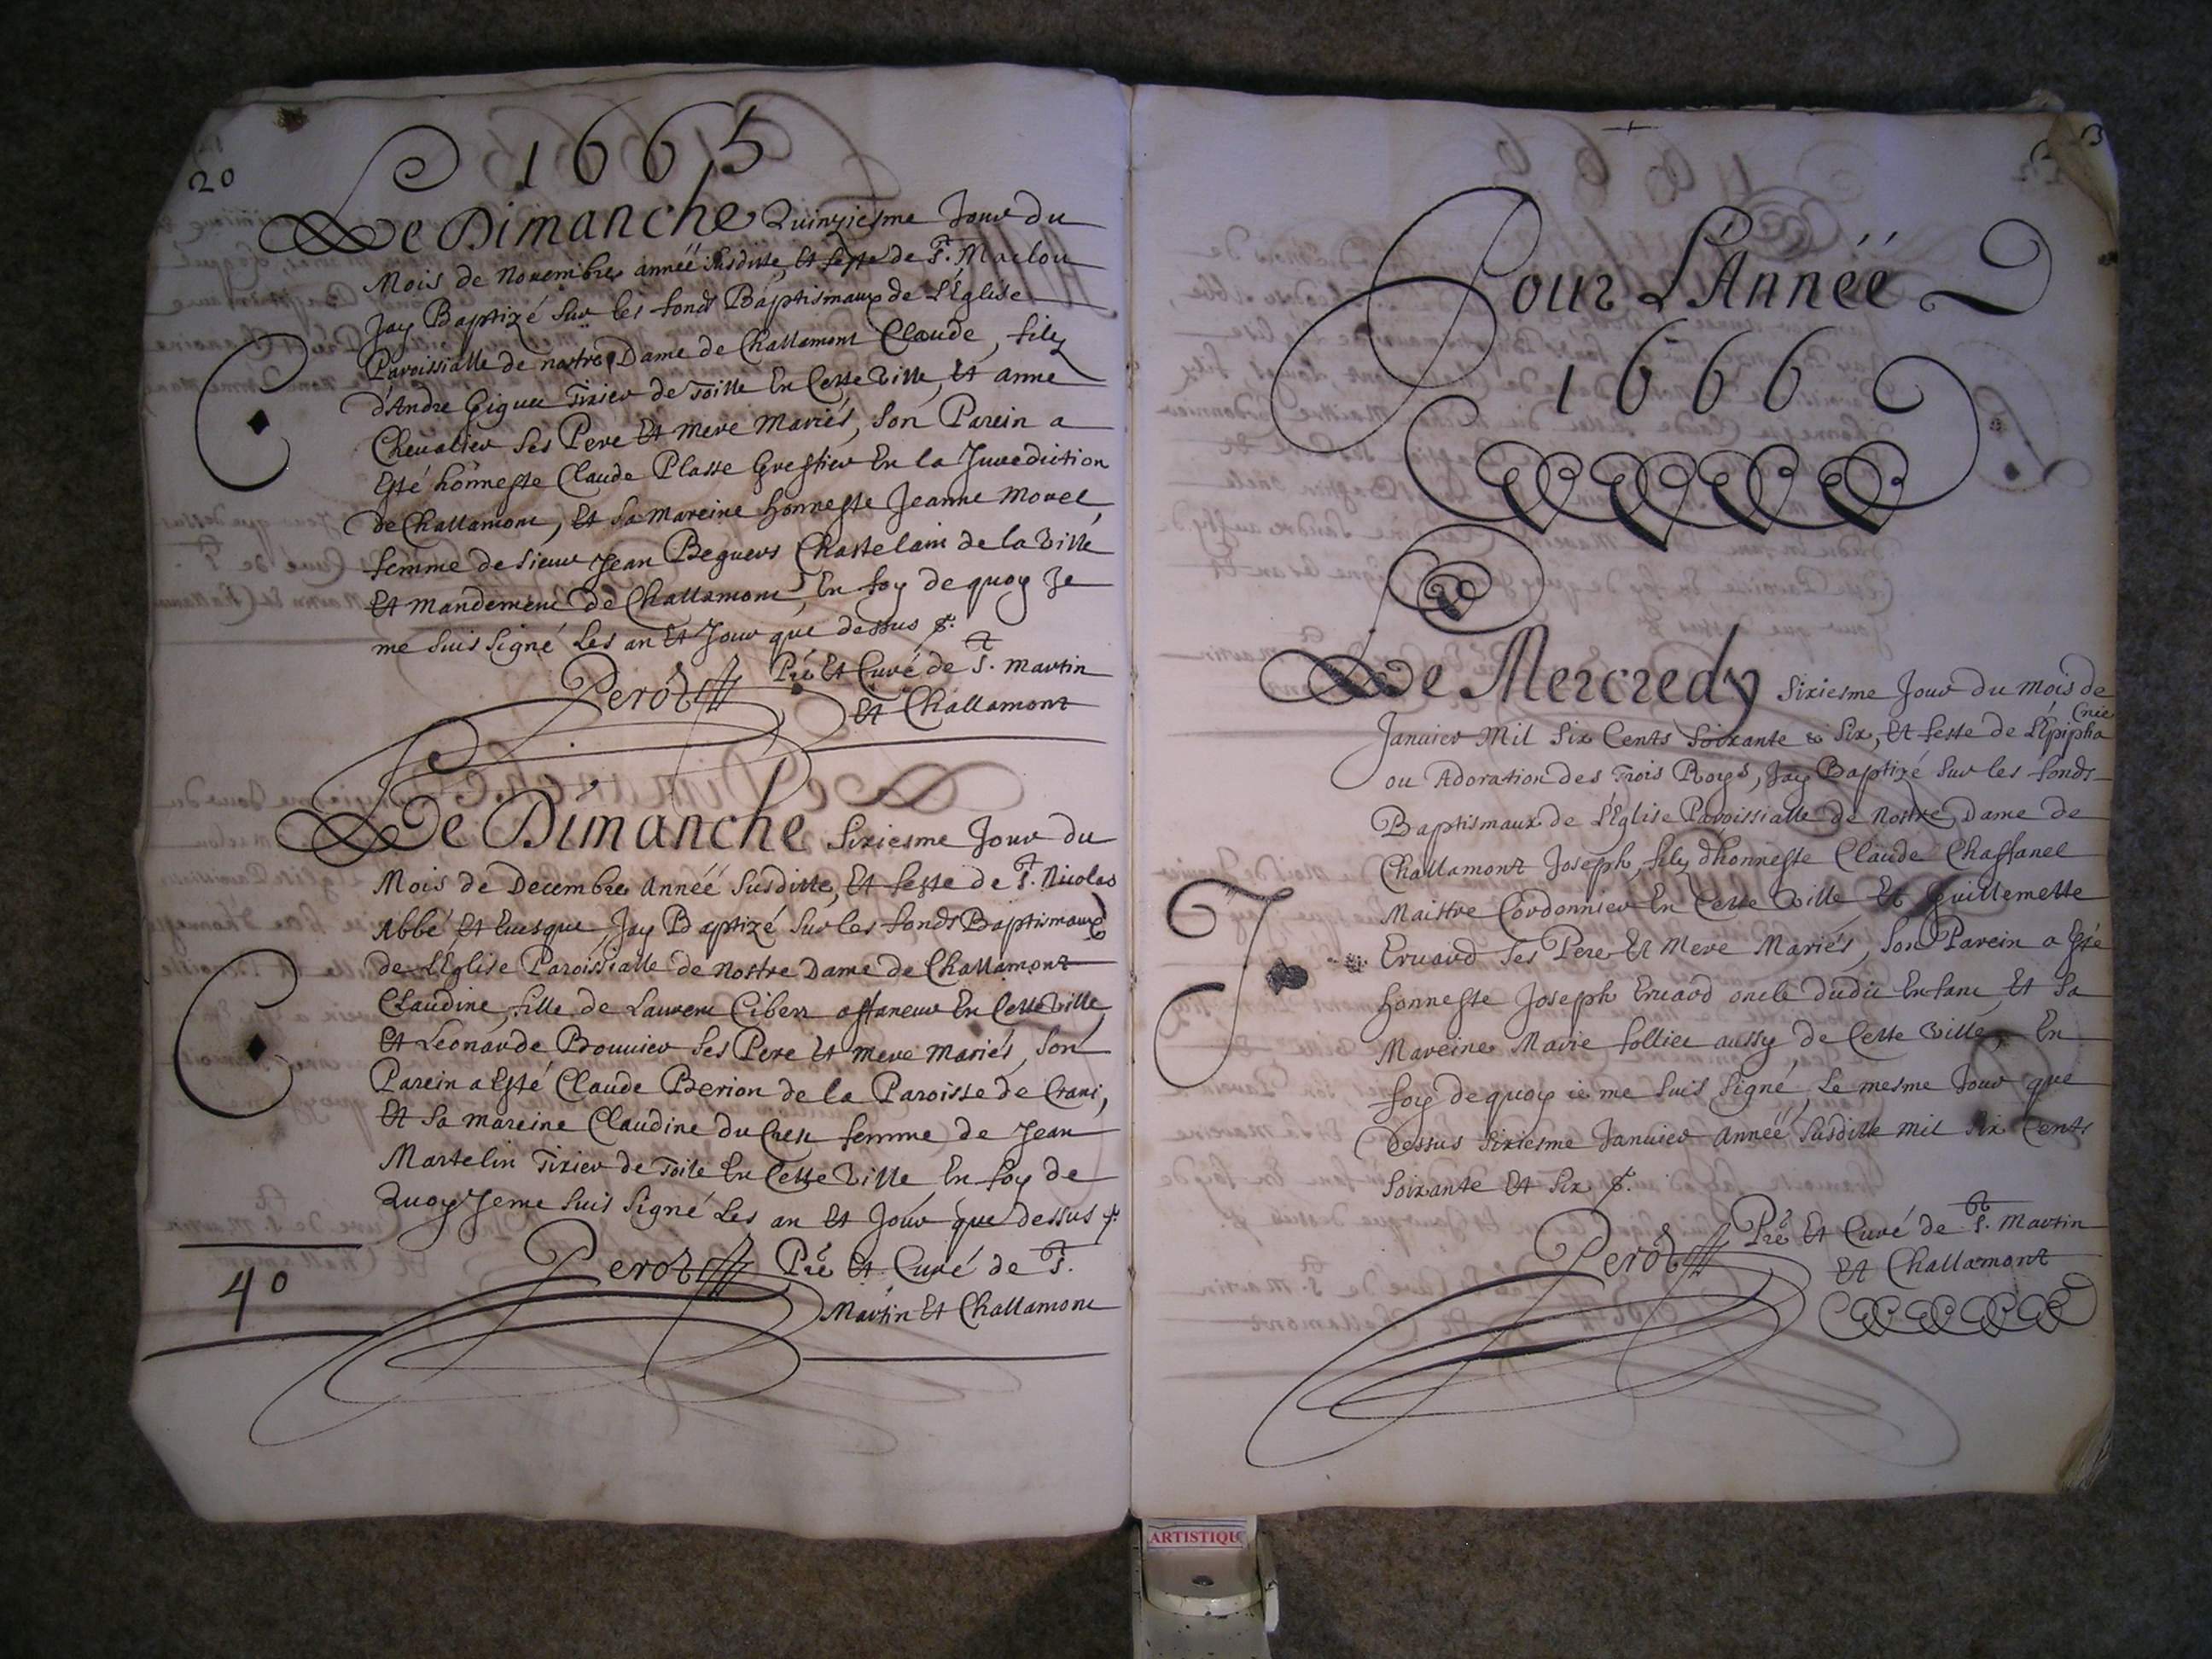 20
1665
Le Dimanche Quinziesme Jour du
Mois de Novembre annéé susditte, Et feste de St. Maclou
Jay Baptizé sur les fonds Baptismaux de L'Église
Paroissialle de nostre Dame de Challamont Claude, filz
d'Andre Giguet Tixier de Toille En Cette Ville, Et anne
Chevalier ses Pere Et mere mariés, son Parein a
Esté honneste Claude Plasse Greffier En la Jurediction
de Challamont, Et sa mareine honneste Jeanne Morel
femme de sieur Jean Beguers Chastelain de la Ville
Et mandement de Challamont, En foy de quoy Je
me suis signé Les an Et Jour que dessus
Perót Pre Et Curé de St. martin
Et Challamont
C
Le Dimanche sixiesme Jour du
Mois de Decembre Annéé susditte, Et feste de St. Nicolas
Abbé Et Evesque Jay Baptizé sur les fonds Baptismaux
de L'Église Paroissialle de nostre Dame de Challamont
Claudine, fille de Laurent Cibert affaneur En Cette Ville,
Et Leonarde Bouvier ses Pere Et mere mariés, son
Parein a Esté Claude Berion de la Paroisse de Crans,
Et sa mareine Claudine du Crest femme de Jean
Martelin Tixier de Toile En Cette Ville En foy de
Quoy Je me suis signé Les an Et Jour que dessus
Perót Pre Et Curé de St.
Martin Et Challamont
C
40
Pour L'Annéé
1666
Le Mercredy sixiesme Jour du mois de
Janvier Mil six Cents soixante & six, Et feste de L'Épipha
nie
ou Adoration des Trois Roys, Jay Baptizé sur les fonds
Baptismaux de L'Église Paroissialle de Nostre Dame de
Challamont Joseph, filz d'honneste Claude Chassanel
Maistre Cordonnier En Cette Ville Et Guillemette
Ervard ses Pere Et Mere Mariés, son Parein a Esté
honneste Joseph Ervard oncle dudit Enfant, Et sa
Mareine Marie follier aussy de Cette Ville, En
foy de quoy ie me suis signé, Le mesme Jour que
Dessus sixiesme Janvier Annéé susditte mil six Cents
soixante Et six
Perót Pre Et Curé de St. Martin
Et Challamont
J
ARTISTIQU